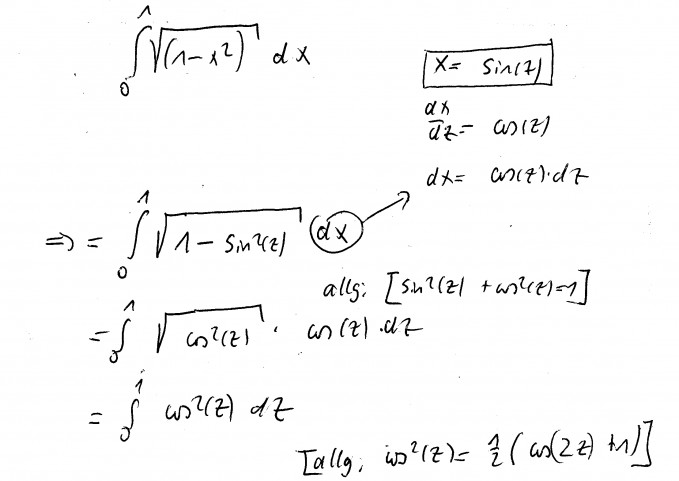 ∫₀¹ √(1-x²) dx
x = sin(z)
dx/dz = cos(z)
dx = cos(z)·dz
⇒ = ∫₀¹ √1 - sin²(z) dx
allg: [sin²(z) + cos²(z)=1]
= ∫₀¹ √cos²(z) · cos(z)·dz
= ∫₀¹ cos²(z) dz
[allg: cos²(z) = 1/2 (cos(2z) +1)]